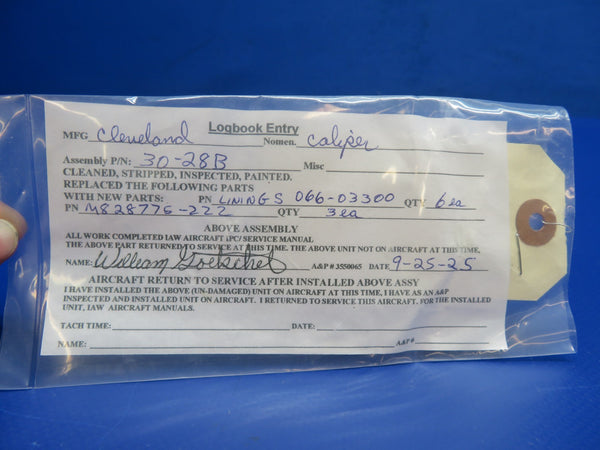 Logbook Entry
MFG Cleveland Nomen. Caliper
Assembly P/N: 30-28B Misc
CLEANED, STRIPPED, INSPECTED, PAINTED.
REPLACED THE FOLLOWING PARTS
WITH NEW PARTS: PN LININGS 066-03300 QTY 6 ea
PN MS28775-222 QTY 3 ea
ABOVE ASSEMBLY
ALL WORK COMPLETED IAW AIRCRAFT IPC/SERVICE MANUAL
THE ABOVE PART RETURNED TO SERVICE AT THIS TIME. THE ABOVE UNIT NOT ON AIRCRAFT AT THIS TIME,
NAME: William Goetschel A&P # 3550065 DATE 9-25-25
AIRCRAFT RETURN TO SERVICE AFTER INSTALLED ABOVE ASSY
I HAVE INSTALLED THE ABOVE (UN-DAMAGED) UNIT ON AIRCRAFT AT THIS TIME, I HAVE AS AN A&P
INSPECTED AND INSTALLED UNIT ON AIRCRAFT. I RETURNED TO SERVICE THIS AIRCRAFT. FOR THE INSTALLED
UNIT, IAW AIRCRAFT MANUALS.
TACH TIME: DATE:
NAME: A&P #